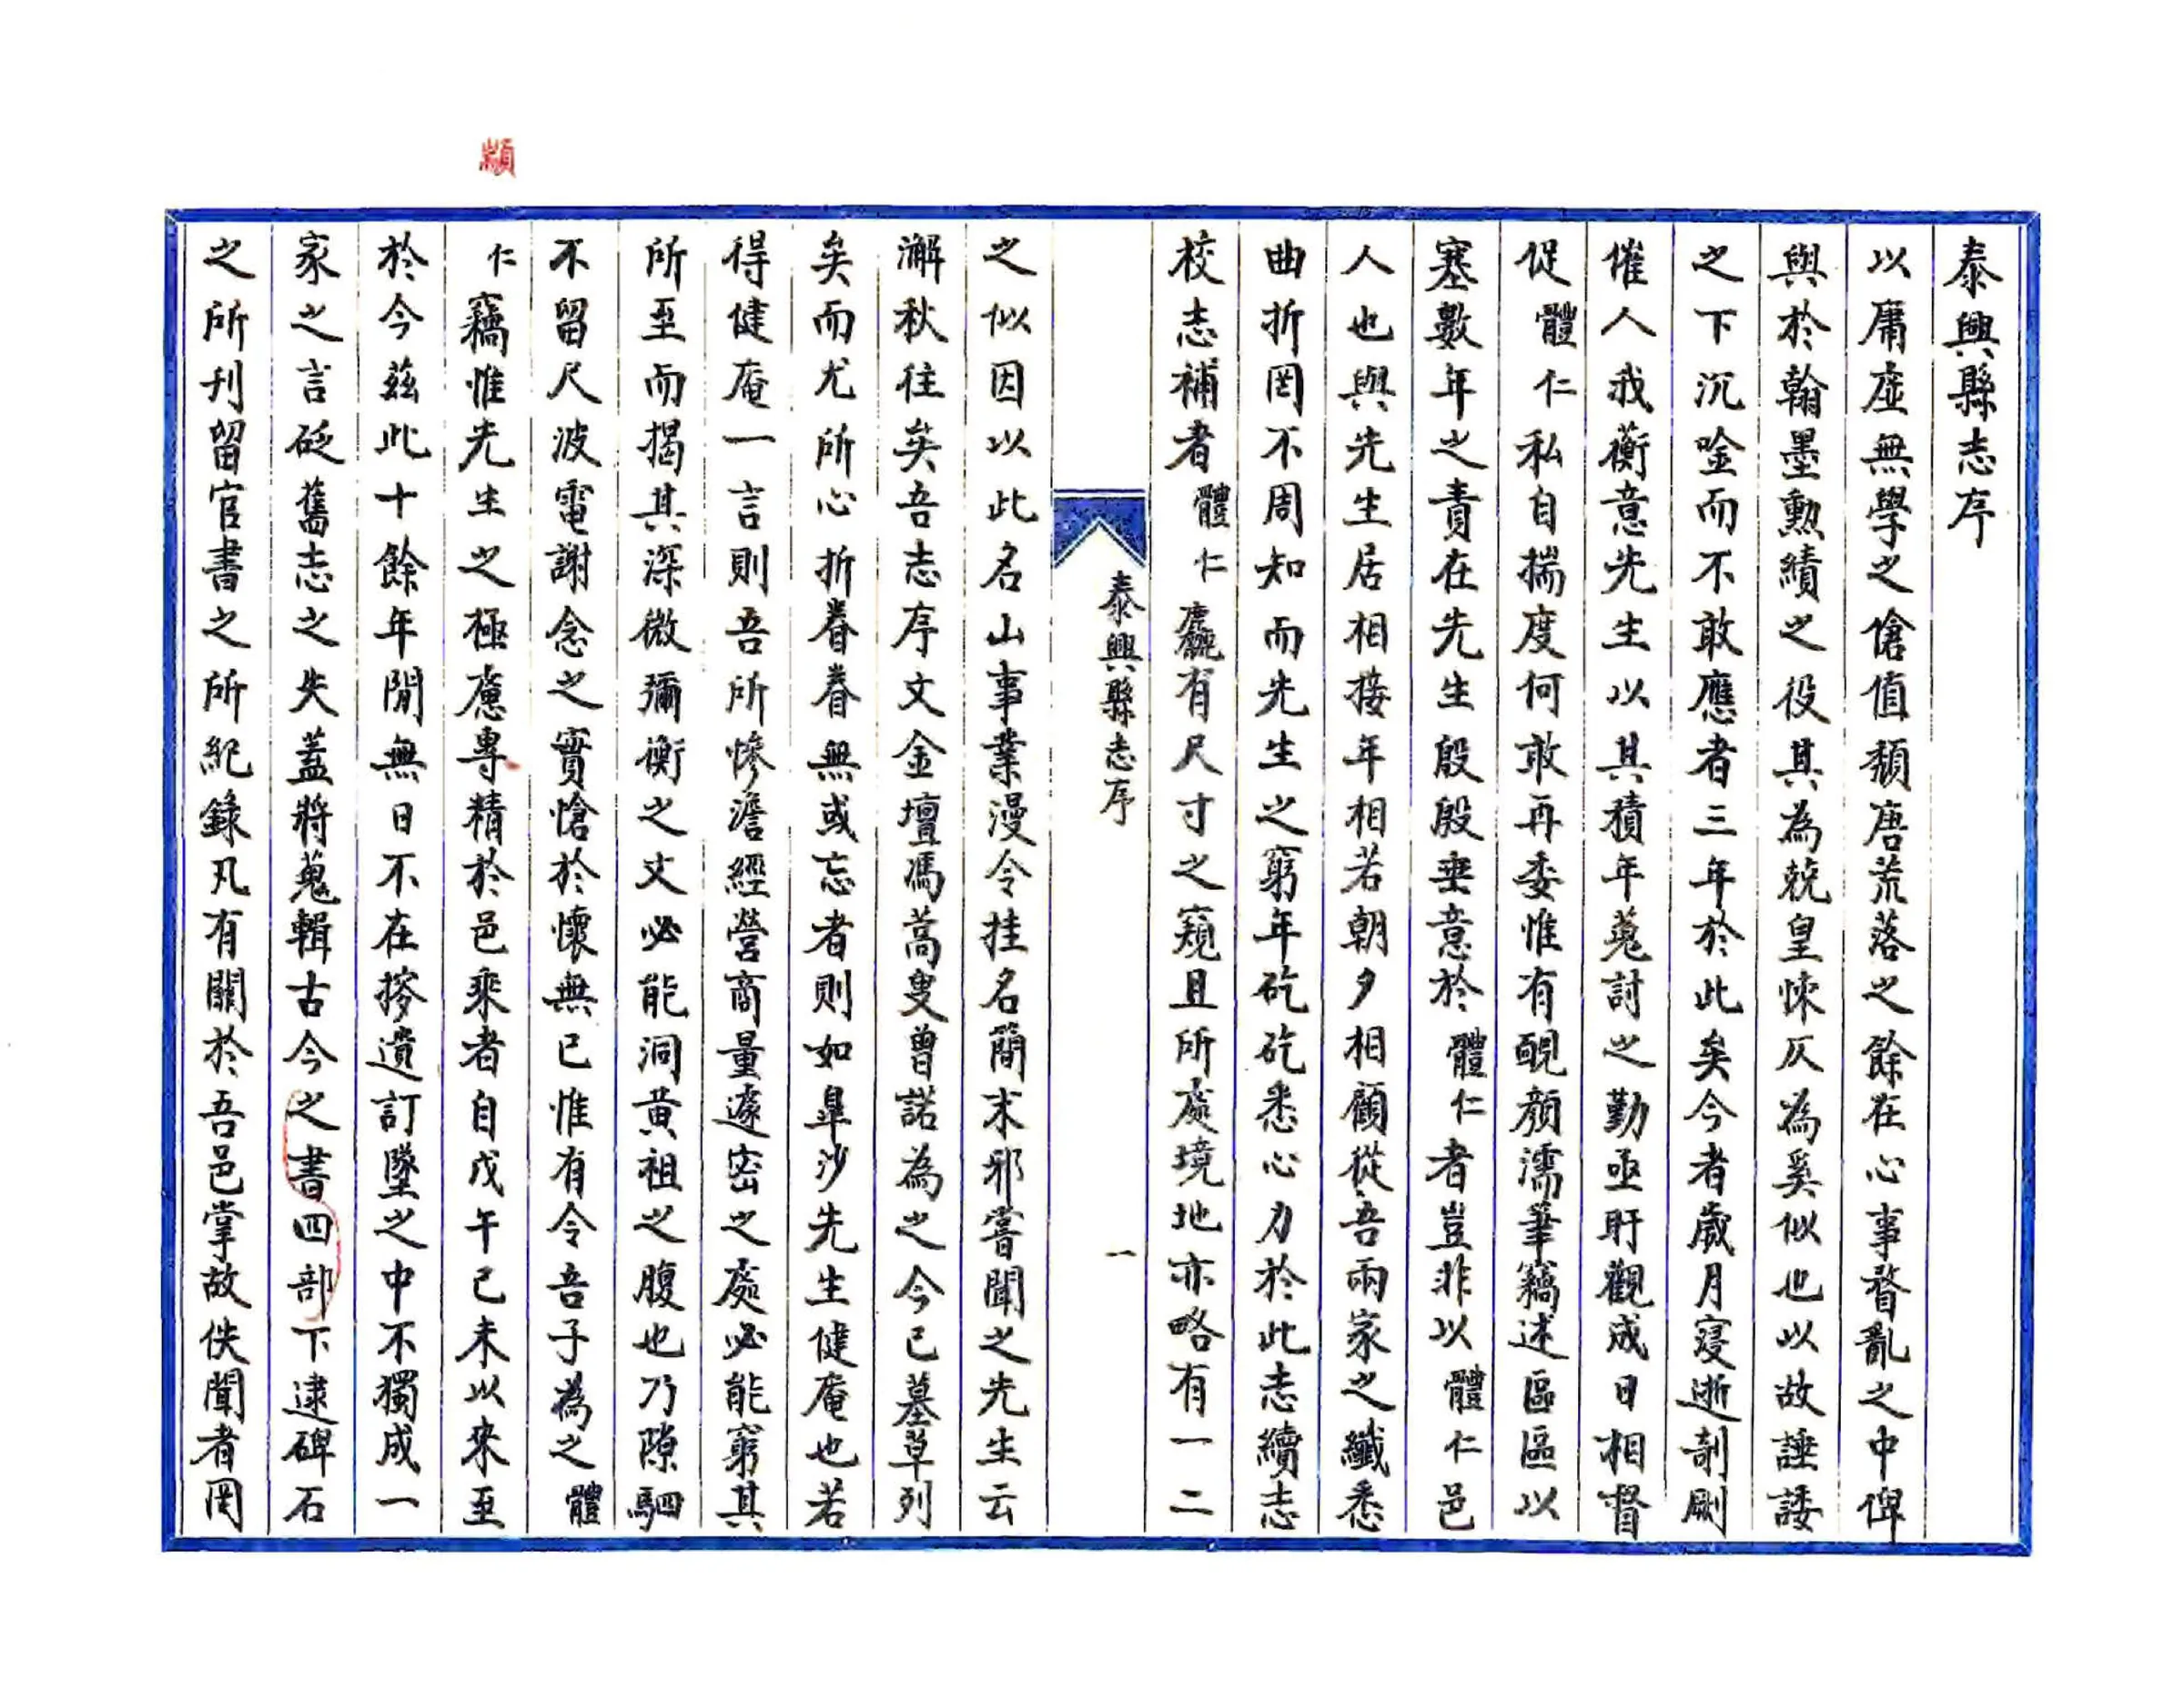 泰興縣志序
以庸虛無學之傖值頹唐荒落之餘在心事瞀亂之中俾
與於翰墨勲績之役其為兢皇悚仄為奚似也以故諈諉
之下沉唫而不敢應者三年於此矣今者歲月寖逝剞劂
催人我蘅意先生以其積年蒐討之勤亟盱觀成日相督
促體仁私自揣度何敢再委惟有靦顏濡筆竊述區區以
塞數年之責在先生殷殷垂意於體仁者豈非以體仁邑
人也與先生居相接年相若朝夕相顧從吾兩家之纖悉
曲折罔不周知而先生之窮年矻矻悉心力於此志續志
校志補者體仁麤有尺寸之窺且所處境地亦略有一二
泰興縣志序
一
之似因以此名山事業漫令挂名簡末邪嘗聞之先生云
澥秋往矣吾志序文金壇馮蒿叟曾諾為之今已墓草列
矣而尤所心折眷眷無或忘者則如臯沙先生健庵也若
得健庵一言則吾所慘澹經營商量邃密之處必能窮其
所至而揭其深微彌衡之文必能洞黃祖之腹也乃隙駟
不留尺波電謝念之實愴於懷無已惟有令吾子為之體
仁竊惟先生之極慮專精於邑乘者自戊午己未以來至
於今茲此十餘年閒無日不在摉遺訂墜之中不獨成一
家之言砭舊志之失蓋將蒐輯古今之書四部下逮碑石
之所刊留官書之所紀錄凡有關於吾邑掌故佚聞者罔
顓